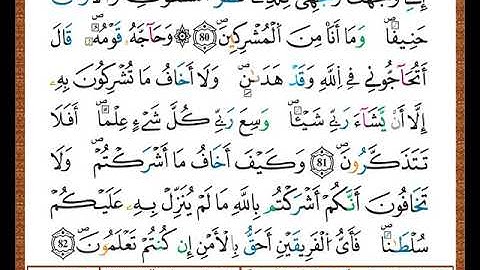 حَنِيفًا ۖ وَمَا أَنَا۠ مِنَ ٱلْمُشْرِكِينَ ۝٨٠ ۞ وَحَآجَّهُۥ قَوْمُهُۥ ۚ قَالَ
أَتُحَـٰٓجُّوٓنِّى فِى ٱللَّهِ وَقَدْ هَدَىٰنِ ۚ وَلَآ أَخَافُ مَا تُشْرِكُونَ بِهِۦٓ
إِلَّآ أَن يَشَآءَ رَبِّى شَيْـًٔا ۗ وَسِعَ رَبِّى كُلَّ شَىْءٍ عِلْمًا ۗ أَفَلَا
تَتَذَكَّرُونَ ۝٨١ وَكَيْفَ أَخَافُ مَآ أَشْرَكْتُمْ وَلَا
تَخَافُونَ أَنَّكُمْ أَشْرَكْتُم بِٱللَّهِ مَا لَمْ يُنَزِّلْ بِهِۦ عَلَيْكُمْ
سُلْطَـٰنًا ۚ فَأَىُّ ٱلْفَرِيقَيْنِ أَحَقُّ بِٱلْأَمْنِ ۖ إِن كُنتُمْ تَعْلَمُونَ ۝٨٢